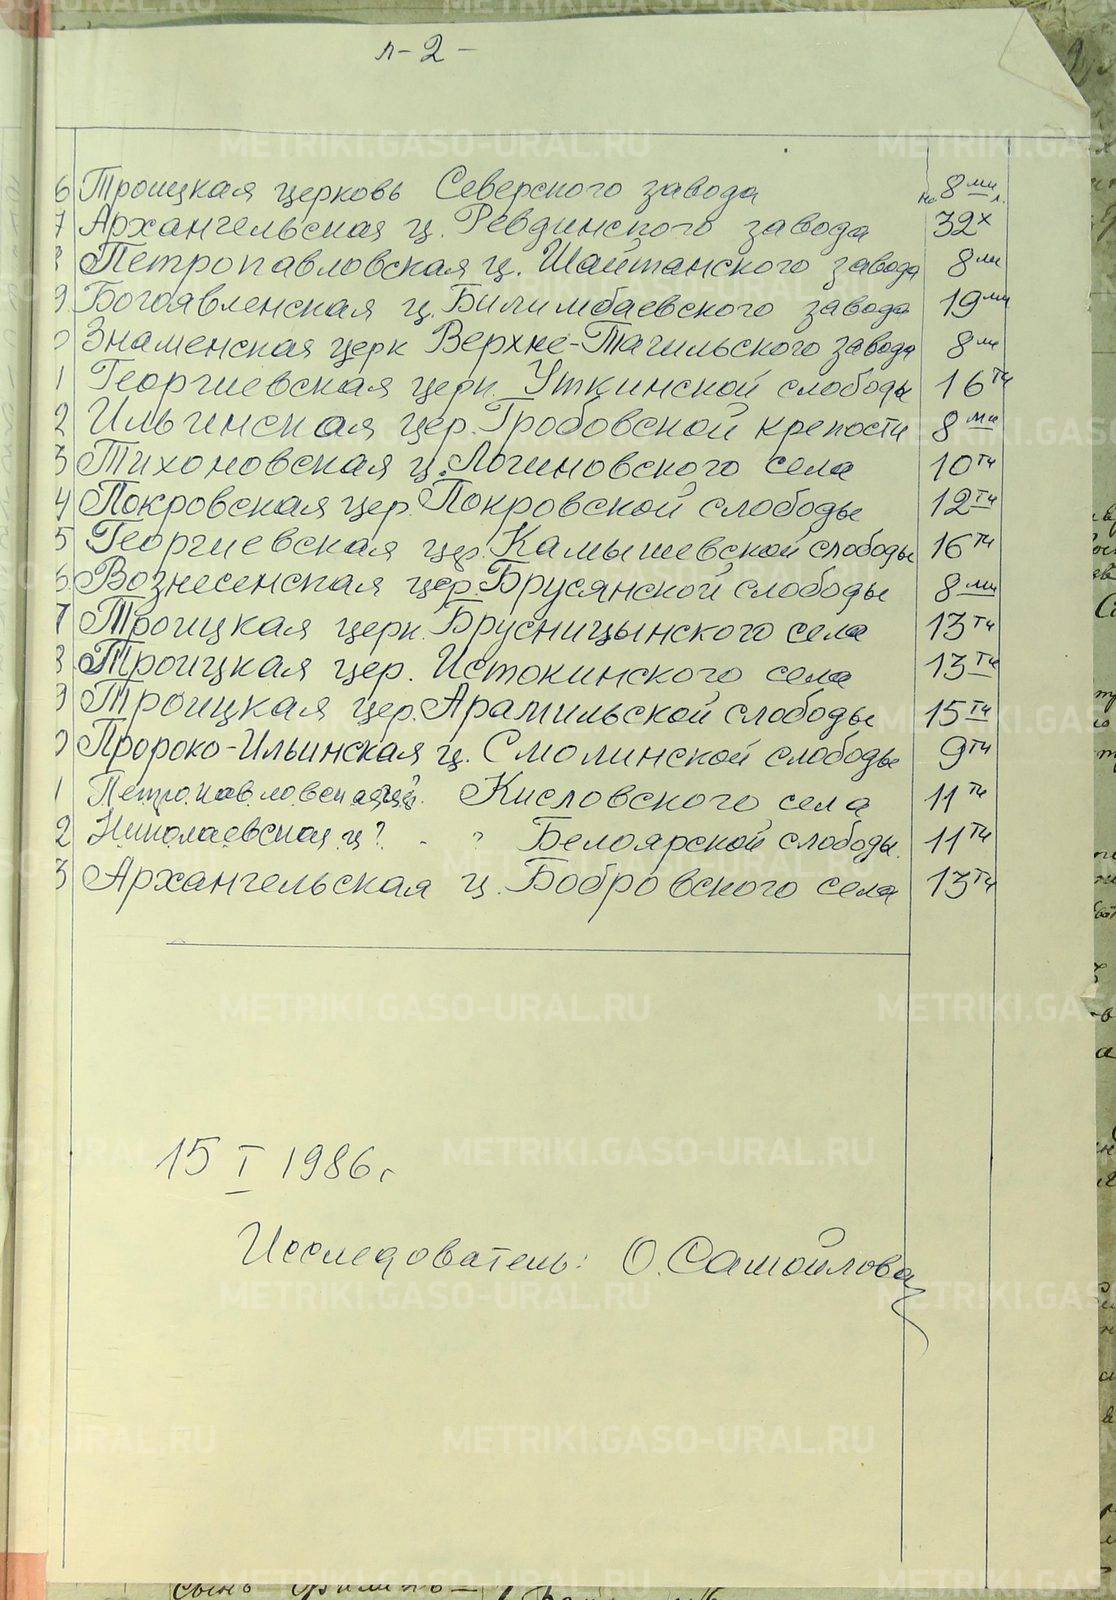 л-2-
6 Троицкая церковь Северского завода на 8ми л.
7 Архангельская ц. Ревдинского завода 32х
8 Петропавловская ц. Шайтанского завода 8ми
9 Богоявленская ц. Билимбаевского завода 19ми
0 Знаменская церк Верхне-Тагильского завода 8ми
1 Георгиевская церк. Уткинской слободы 16ти
2 Ильинская цер. Гробовской крепости 8ми
3 Тихоновская ц. Логиновского села 10ти
4 Покровская цер. Покровской слободы 12ти
5 Георгиевская цер. Камышевской слободы 16ти
6 Вознесенская цер. Брусянской слободы 8ми
7 Троицкая церк. Брусницынского села 13ти
8 Троицкая цер. Истокинского села 13ти
9 Троицкая цер. Арамильской слободы 15ти
0 Пророко-Ильинская ц. Смолинской слободы 9ти
1 Петропавловская ц? Кисловского села 11ти
2 Николаевская ц? - " Белоярской слободы. 11ти
3 Архангельская ц. Бобровского села 13ти
15 I 1986г
Исследователь: О. Самойлова
METRIKI.GASO-URAL.RU